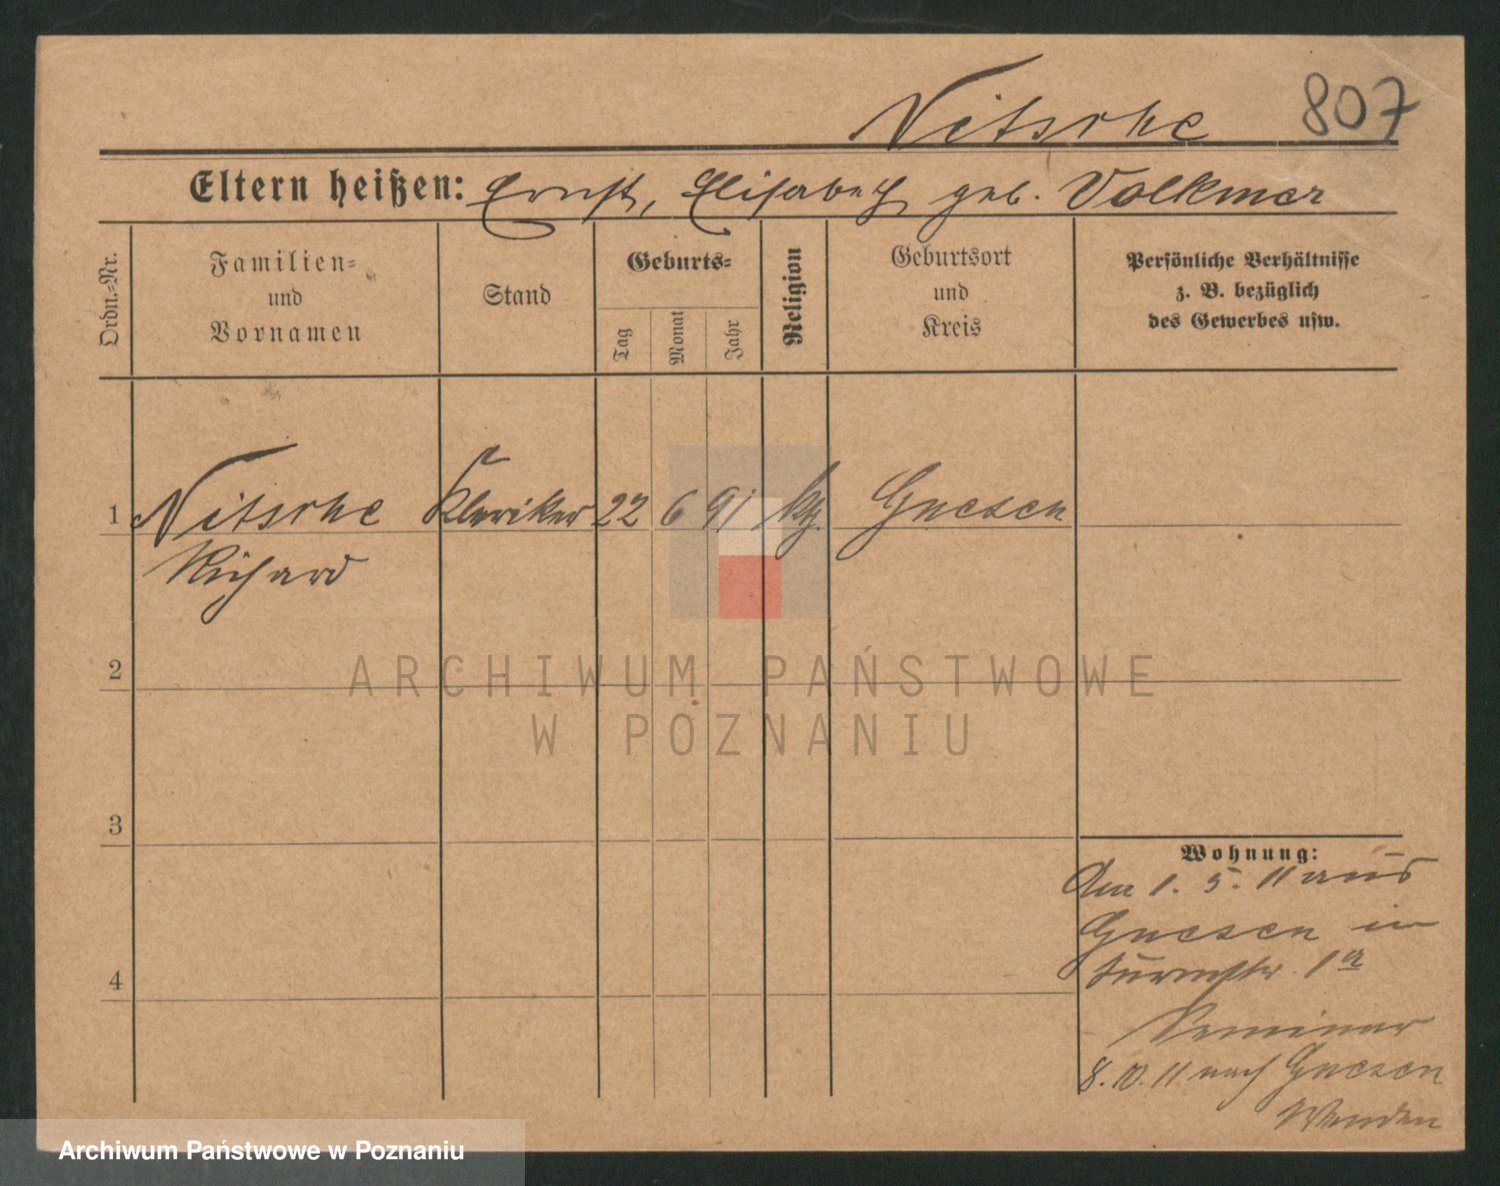 Nitsche 807
Eltern heißen: Ernst, Elisabeth geb. Volkmer
Ordn.=Nr.
Familien=
und
Vornamen
Stand
Geburts=
Tag
Monat
Jahr
Religion
Geburtsort
und
Kreis
Persönliche Verhältnisse
z. B. bezüglich
des Gewerbes usw.
1 Nitsche Kleriker 22 6 91 kg. Gnesen
Richard
2
3
4
Wohnung:
Am 1. 5. 11 aus
Gnesen in
Turmstr. 1a
Seminar
8. 10. 11 nach Gnesen
ARCHIWUM PAŃSTWOWE
W POZNANIU
Archiwum Państwowe w Poznaniu